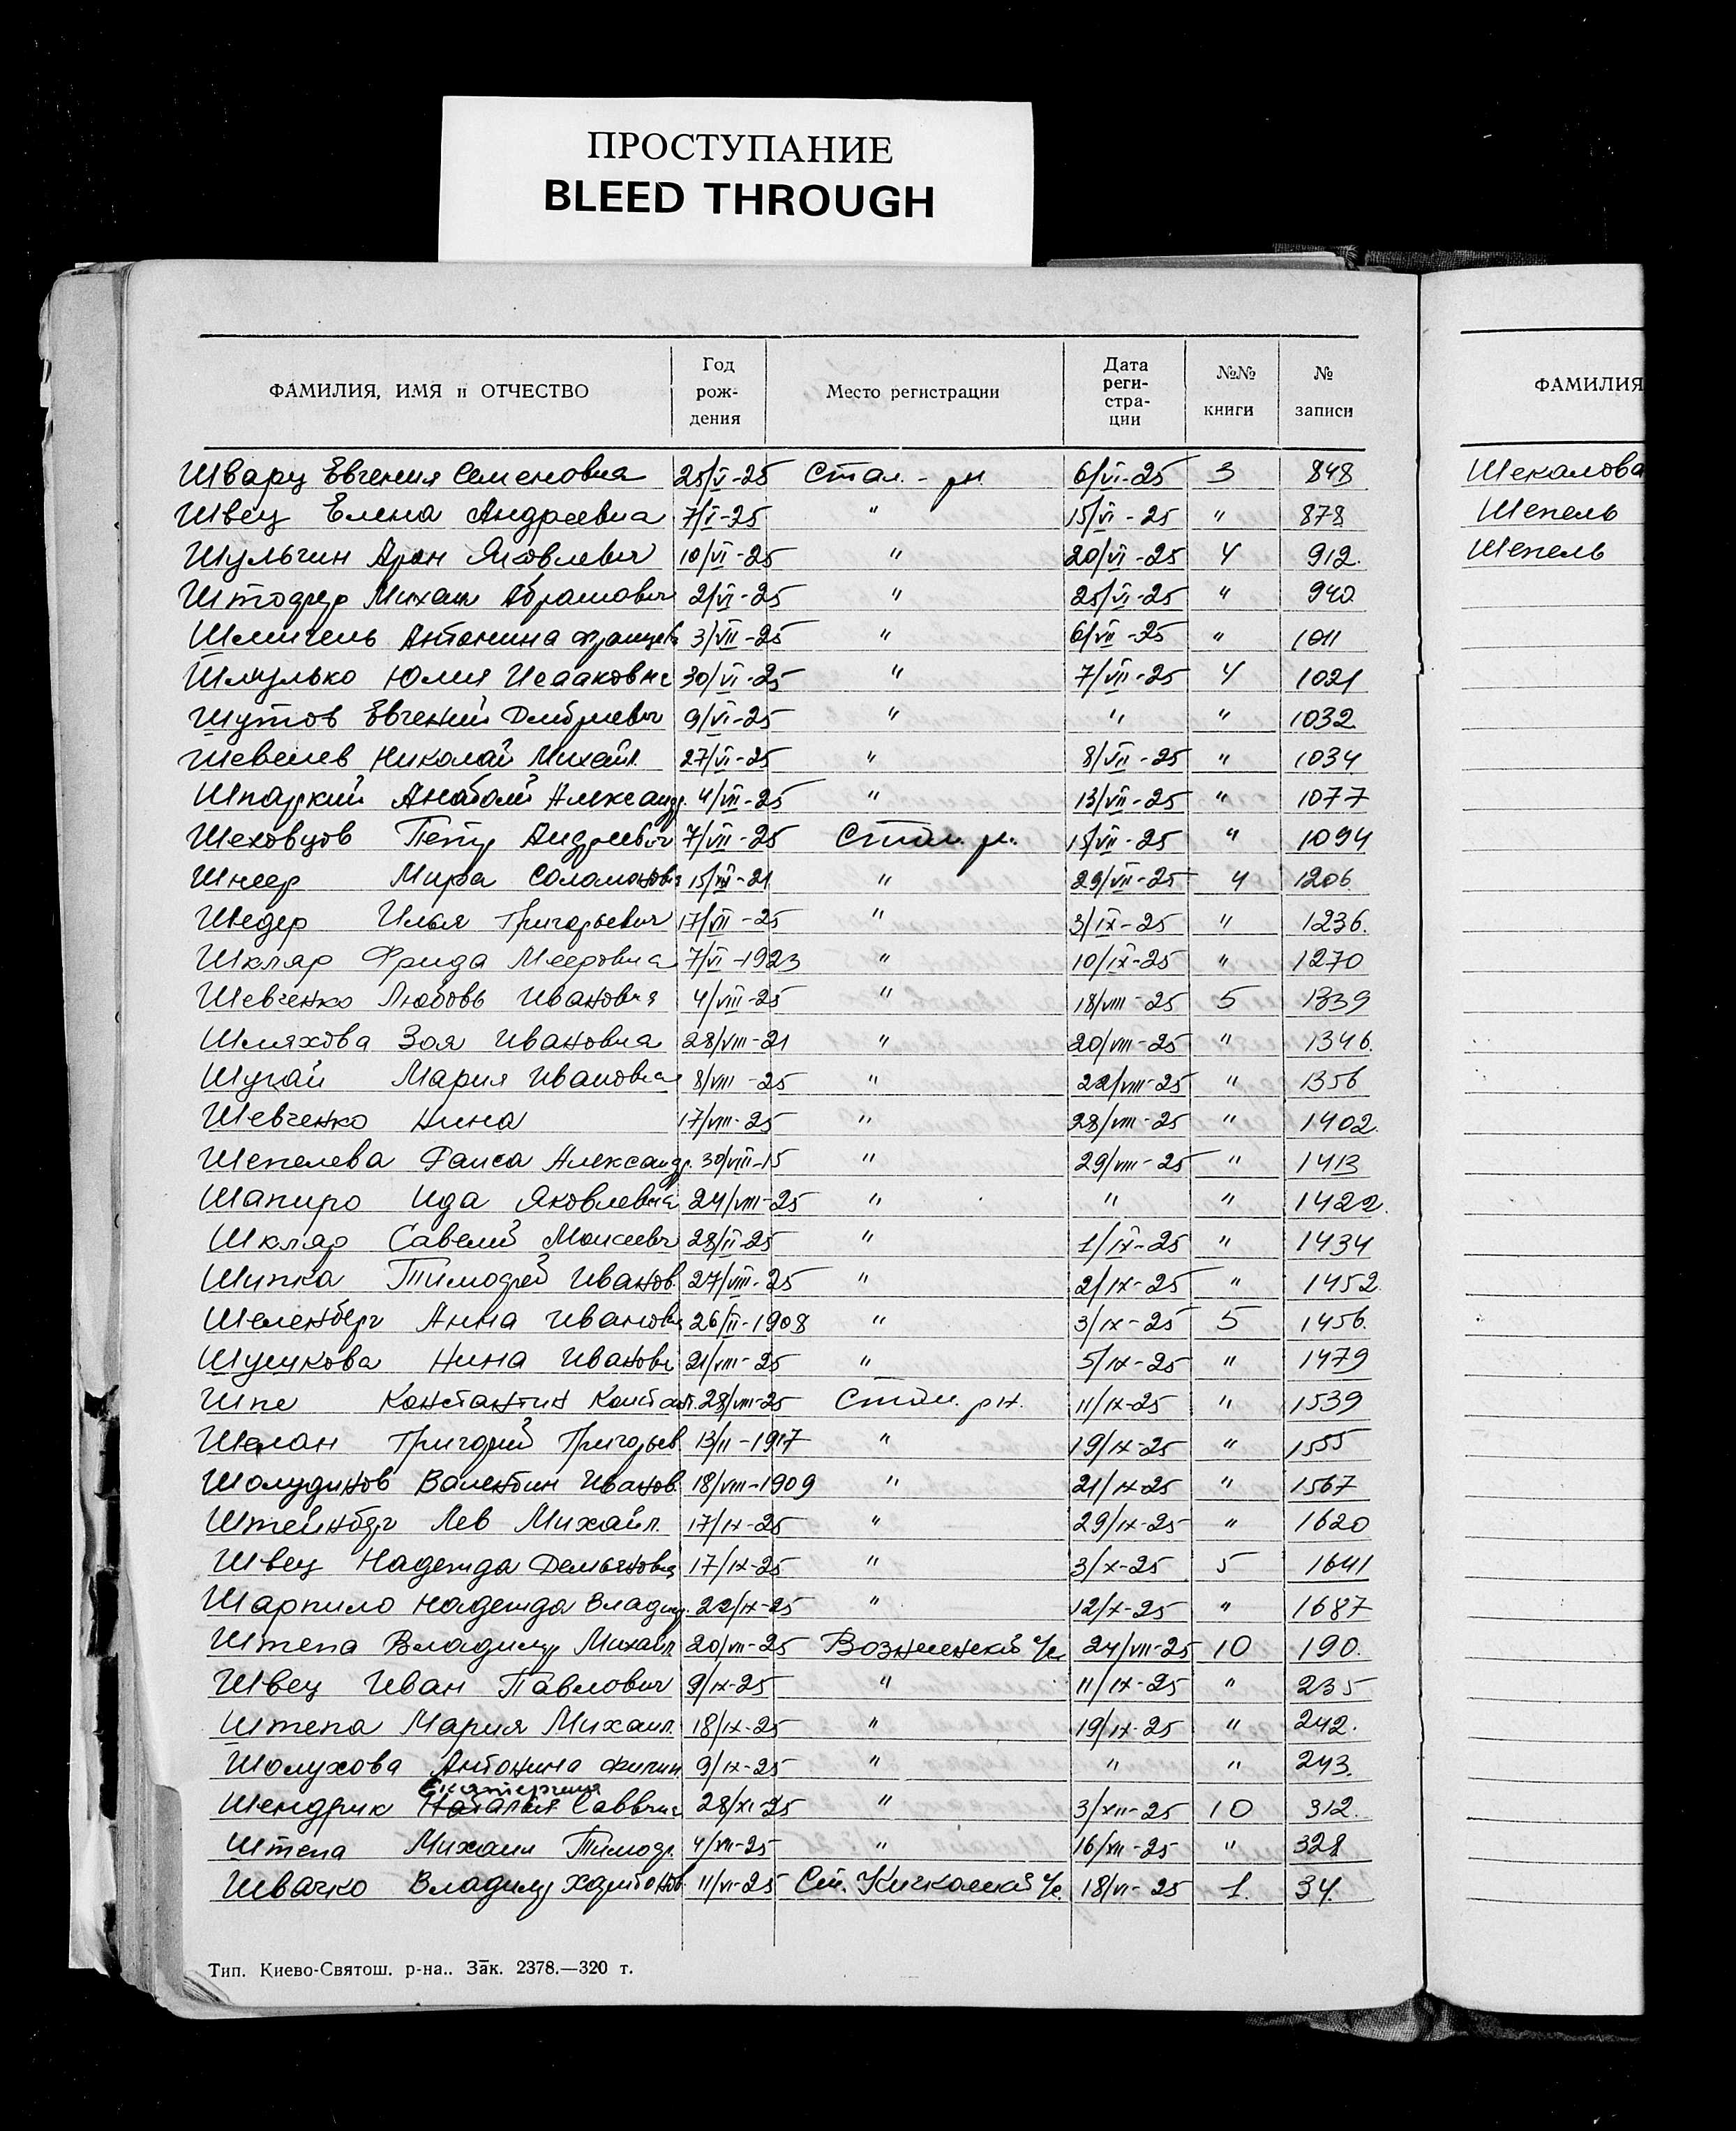 ПРОСТУПАНИЕ
BLEED THROUGH
ФАМИЛИЯ, ИМЯ и ОТЧЕСТВО Год рождения Место регистрации Дата регистрации №№ книги № записи
Шварц Евгения Семеновна 25/V-25 Стал. - рн 6/VI-25 3 848
Швец Елена Андреевна 7/I-25 " 15/VI-25 " 878
Шульгин Арон Яковлевич 10/VI-25 " 20/VI-25 4 912.
Михаил Абрамович 2/VI-25 " 25/VI-25 " 940
Антонина 3/VII-25 " 6/VII-25 " 1011
Шмулько Юлия Исааковна 30/VI-25 " 7/VII-25 4 1021
Шутов Евгений Дмитриевич 9/VI-25 " " " 1032
Шевелев Николай Михайл. 27/VI-25 " 8/VII-25 " 1034
Анатолий Александр. 4/VII-25 " 13/VII-25 " 1077
Шеховцов Петр Андреевич 7/VII-25 Стал. рн. 15/VII-25 " 1094
Шнеер Мира Соломоновн 29/VII-25 4 1206
Шедер Илья Григорьевич 17/VII-25 " 3/IX-25 " 1236.
Шкляр Фрида Мееровна 7/VI-1923 " 10/IX-25 " 1270
Шевченко Любовь Ивановня 4/VIII-25 " 18/VIII-25 5 1339
Шляхова Зоя Ивановна 28/VIII-21 " 20/VIII-25 " 1346.
Шугай Мария Ивановна 8/VIII-25 " 22/VIII-25 " 1356
Шевченко Нина 17/VIII-25 " 28/VIII-25 " 1402.
Шепелева Раиса Александр. 30/VIII-15 " 29/VIII-25 " 1413
Шапиро Ида Яковлевна 24/VIII-25 " " " 1422.
Шкляр Савелий Моисеевич 28/II-25 " 1/IX-25 " 1434
Шипка Тимофей Иванов. 27/VIII-25 " 2/IX-25 " 1452
Шеленберг Анна Ивановн 26/II-1908 " 3/IX-25 5 1456.
Шушкова Нина Ивановн 21/VIII-25 " 5/IX-25 " 1479
Шпе Константин Констант. 28/VIII-25 Стал. рн. 11/IX-25 " 1539
Григорий Григорьев. 13/II-1917 " 19/IX-25 " 1555
Шолудинов Валентин Иванов. 18/VIII-1909 " 21/IX-25 " 1567
Штейнберг Лев Михайл. 17/IX-25 " 29/IX-25 " 1620
Швец Надежда Демьяновна 17/IX-25 " 3/X-25 5 1641
Шарпило Надежда Владим. 22/IX-25 " 12/X-25 " 1687
Штепа Владимир Михайл. 20/VII-25 24/VII-25 10 190.
Швец Иван Павлович 9/IX-25 " 11/IX-25 " 235
Штепа Мария Михаил. 18/IX-25 " 19/IX-25 " 242.
Шолухова Антонина Филип. 9/IX-25 " " " 243.
Екатерина
Шендрик Наталья Саввична 28/XI-25 " 3/XII-25 10 312.
Штепа Михаил Тимоф. 4/XII-25 " 16/XII-25 " 328
Швачко Владимир Харитонов. 11/VI-25 18/VI-25 1. 34.
Тип. Киево-Святош. р-на.. Зак. 2378.—320 т.
ФАМИЛИЯ
Шекалова
Шепель
Шепель